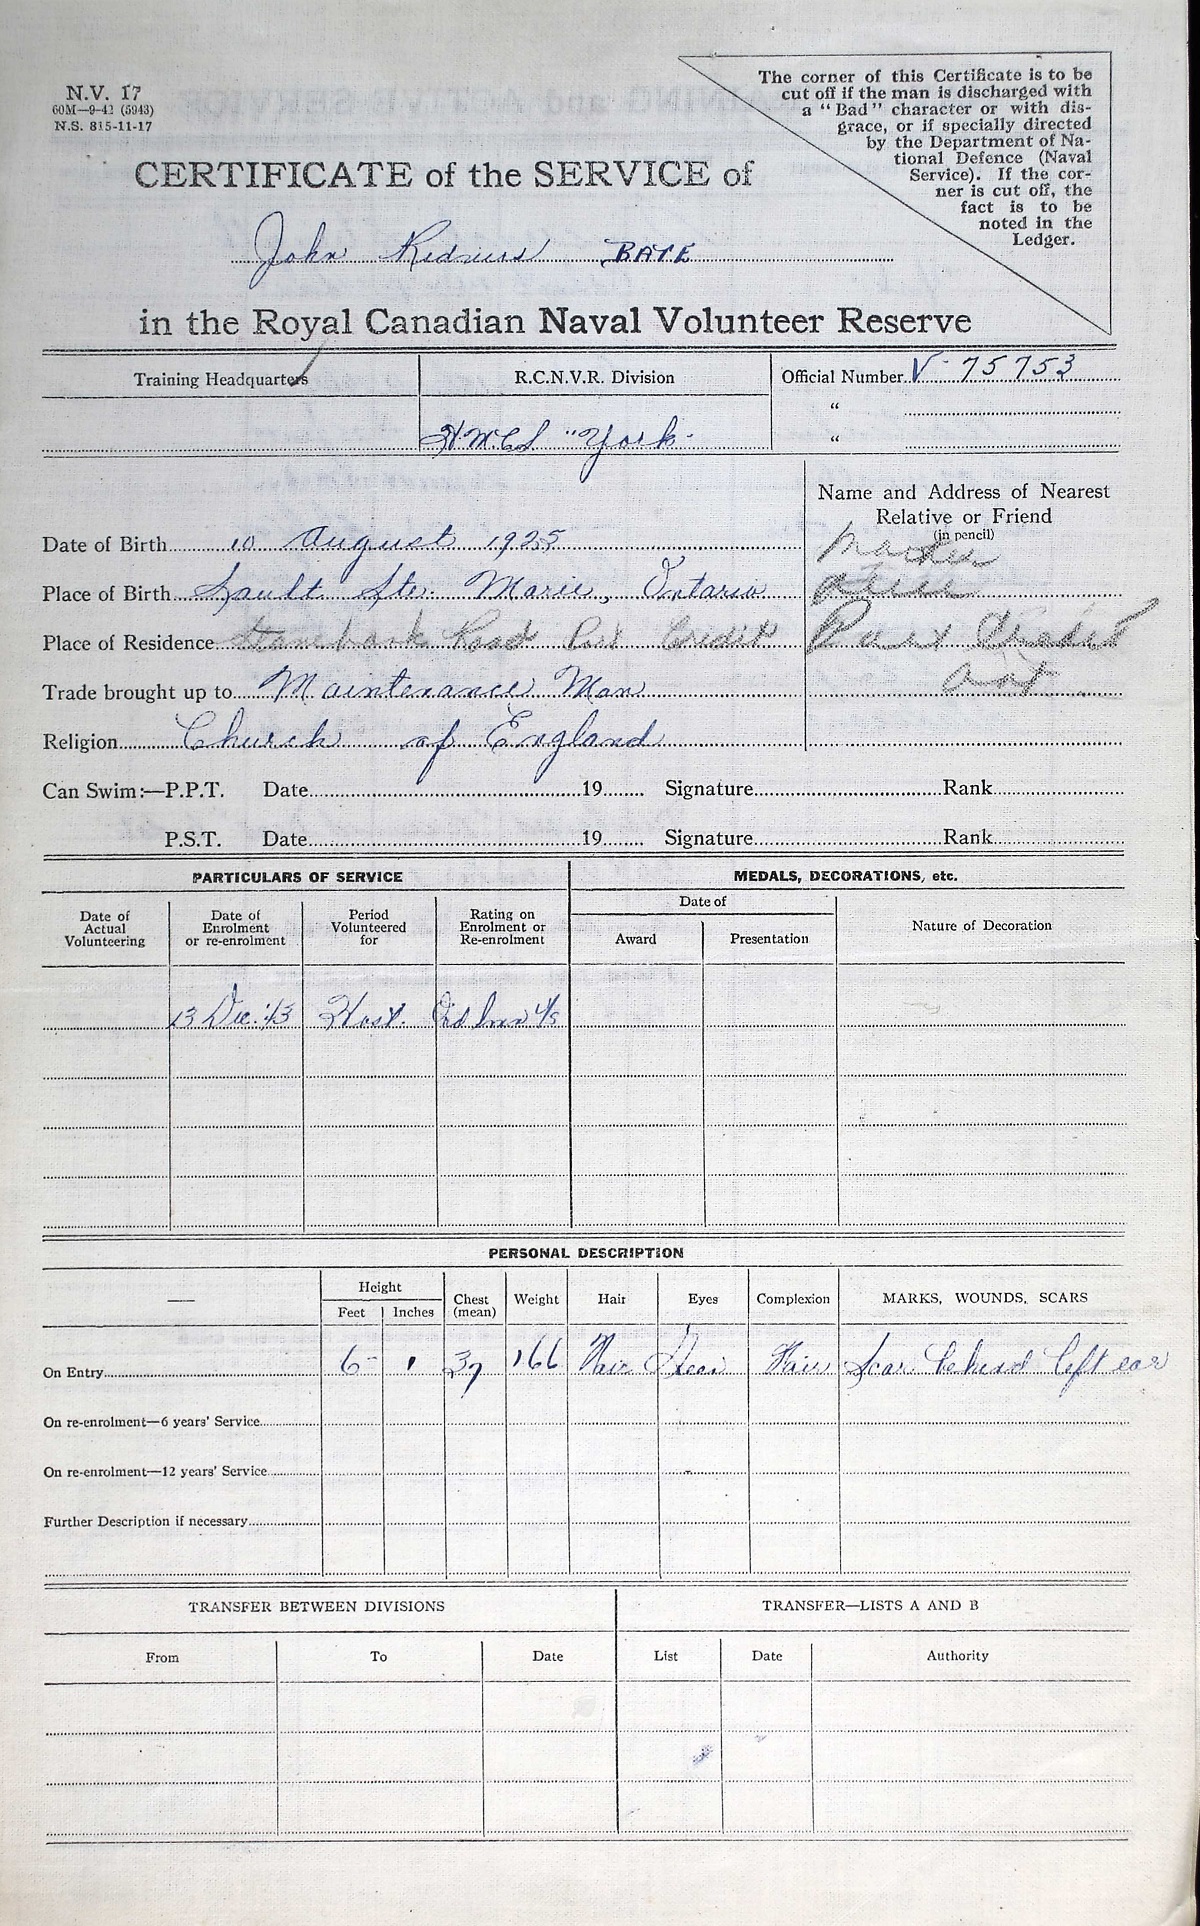 N.V. 17
60M—9-42 (5943)
N.S. 815-11-17
The corner of this Certificate is to be
cut off if the man is discharged with
a "Bad" character or with dis-
grace, or if specially directed
by the Department of Na-
tional Defence (Naval
Service). If the cor-
ner is cut off, the
fact is to be
noted in the
Ledger.
CERTIFICATE of the SERVICE of
John BATE
in the Royal Canadian Naval Volunteer Reserve
Training Headquarters
R.C.N.V.R. Division
Official Number V-75753
"
H.M.C.S "York"
"
Name and Address of Nearest
Relative or Friend
(in pencil)
Date of Birth 10 August 1925
Mother
Place of Birth Sault Ste. Marie, Ontario
Place of Residence Stavebank Road Port Credit
Port Credit
Ont
Trade brought up to Maintenance Man
Religion Church of England
Can Swim:—P.P.T. Date 19 Signature Rank
P.S.T. Date 19 Signature Rank
PARTICULARS OF SERVICE
MEDALS, DECORATIONS, etc.
Date of
Actual
Volunteering
Date of
Enrolment
or re-enrolment
Period
Volunteered
for
Rating on
Enrolment or
Re-enrolment
Date of
Award
Presentation
Nature of Decoration
13 Dec. '43 Host.
PERSONAL DESCRIPTION
—
Height
Feet
Inches
Chest
(mean)
Weight
Hair
Eyes
Complexion
MARKS, WOUNDS, SCARS
On Entry 6- 1 37 166 Fair Scar behind left ear
On re-enrolment—6 years' Service
On re-enrolment—12 years' Service
Further Description if necessary
TRANSFER BETWEEN DIVISIONS
TRANSFER—LISTS A AND B
From
To
Date
List
Date
Authority